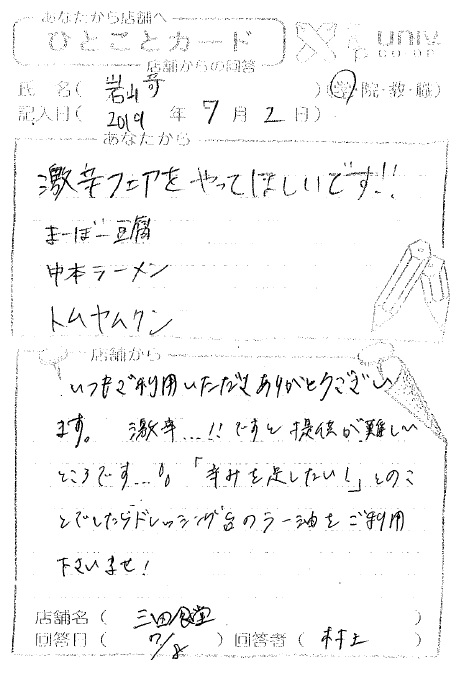 あなたから店舗へ
ひとことカード
univ.
CO-OP
店舗からの回答
氏 名( 岩山奇 )(学・院・教・職)
記入日( 2019 年 7 月 2 日)
あなたから
激辛フェアをやってほしいです!!
まーぼー豆腐
中本ラーメン
トムヤムクン
店舗から
いつもご利用いただきありがとうござい
ます。 激辛...!!ですと提供が難しい
ところです...。「辛みを足したい!」とのこ
とでしたらドレッシング台のラー油をご利用
下さいませ!
店舗名( 三田食堂 )
回答日( 7/8 ) 回答者( 村上 )